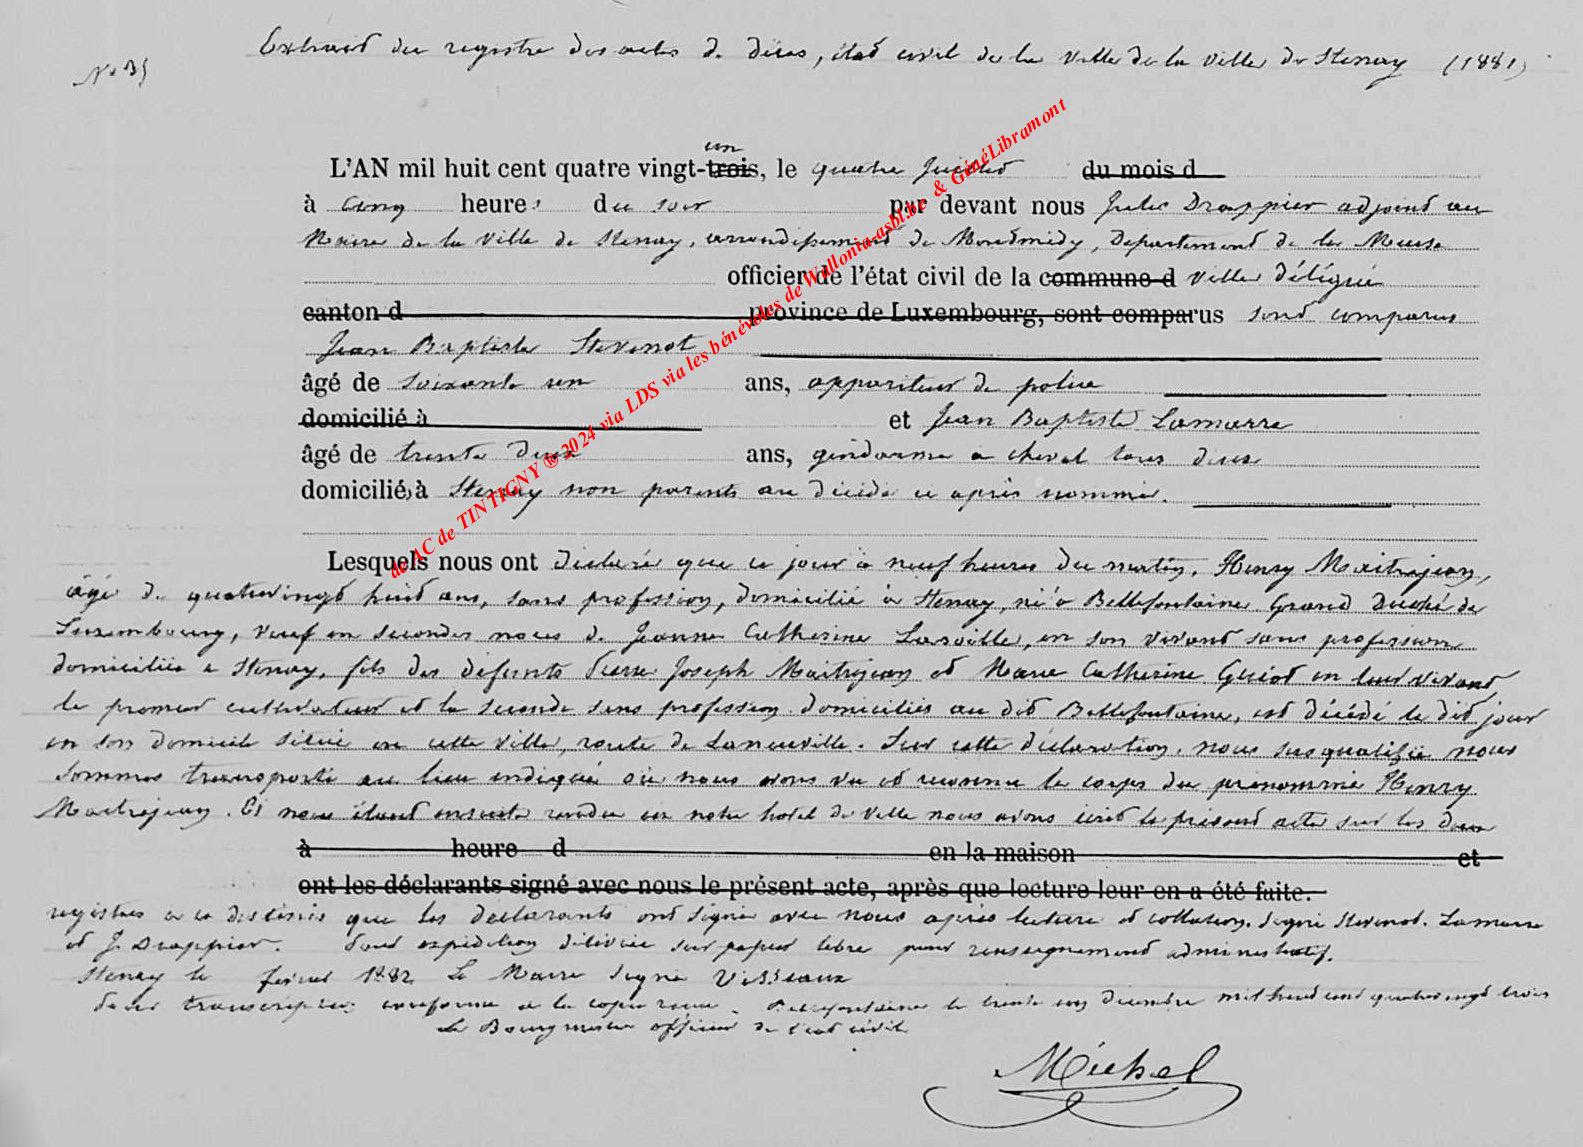 Extrait du registre des actes de décès, état civil de la Ville de la Ville de Stenay (1881)
No 35
un
L'AN mil huit cent quatre vingt-trois, le quatre Juillet du mois d
à cinq heures du soir par devant nous Jules Drappier adjoint au
Maire de la Ville de Stenay, arrondissement de Montmédy, Département de la Meuse
officier de l'état civil de la commune d Ville délégué
canton d province de Luxembourg, sont comparus sont comparus
Jean Baptiste Stevenot
âgé de soixante un ans, appariteur de police
domicilié à et Jean Baptiste Lamarre
âgé de trente deux ans, gendarme à cheval tous deux
domiciliés à Stenay non parents au décédé ci après nommé.
Lesquels nous ont déclaré que ce jour à neuf heures du matin, Henry Maitrejean,
âgé de quatrevingt huit ans, sans profession, domicilié à Stenay, né à Bellefontaine Grand Duché de
Luxembourg, veuf en secondes noces de Jeanne Catherine Laroille, en son vivant sans profession
domiciliée à Stenay, fils des défunts Pierre Joseph Maitrejean et Marie Catherine Guiot en leur vivant
le premier cultivateur et la seconde sans profession domiciliés au dit Bellefontaine, est décédé le dit jour
en son domicile situé en cette ville, route de Laneuville. Sur cette déclaration, nous susqualifié nous
sommes transporté au lieu indiqué où nous avons vu et reconnu le corps du prénommé Henry
Maitrejean. Et nous étant ensuite rendu en notre hotel de Ville nous avons écrit le présent acte sur les deux
à heure d en la maison et
ont les déclarants signé avec nous le présent acte, après que lecture leur en a été faite.
registres à ce destinés que les déclarants ont signé avec nous après lecture et collation. Signé Stevenot. Lamarre
et J. Drappier. Pour expédition délivrée sur papier libre pour renseignement administratif.
Stenay le février 1882 Le Maire signé Visseaux
Pour transcription conforme à la copie reçue. Bellefontaine le trente un décembre mil huit cent quatre vingt trois
Le Bourgmestre officier de l'état civil
Michel
de AC de TINTIGNY ® 2024 via LDS via les bénévoles de Wallonia-asbl.be & GénéLibramont